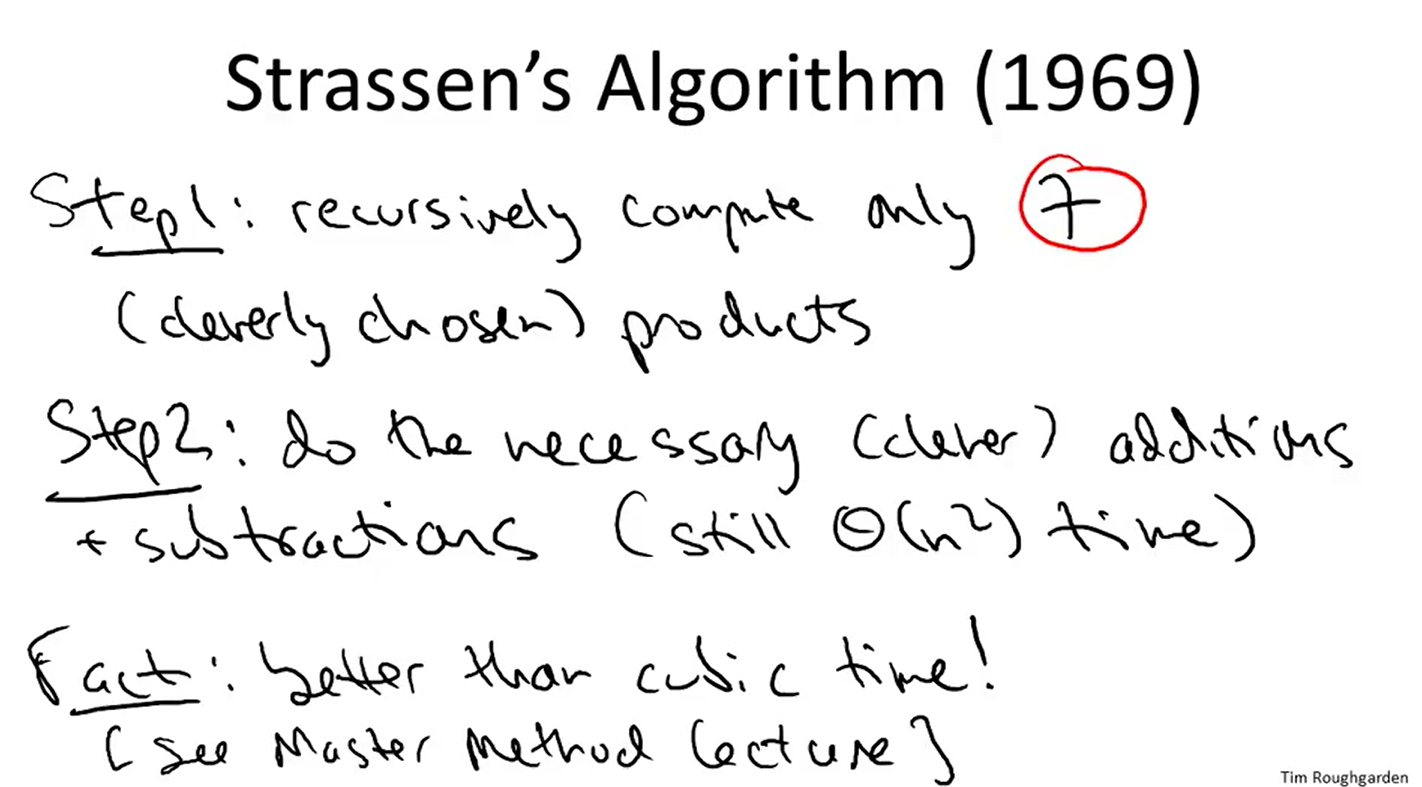 Strassen's Algorithm (1969)
Step1: recursively compute only 7
(cleverly chosen) products
Step2: do the necessary (clever) additions
+ subtractions (still Θ(n²) time)
Fact: better than cubic time!
[see Master Method lecture]
Tim Roughgarden